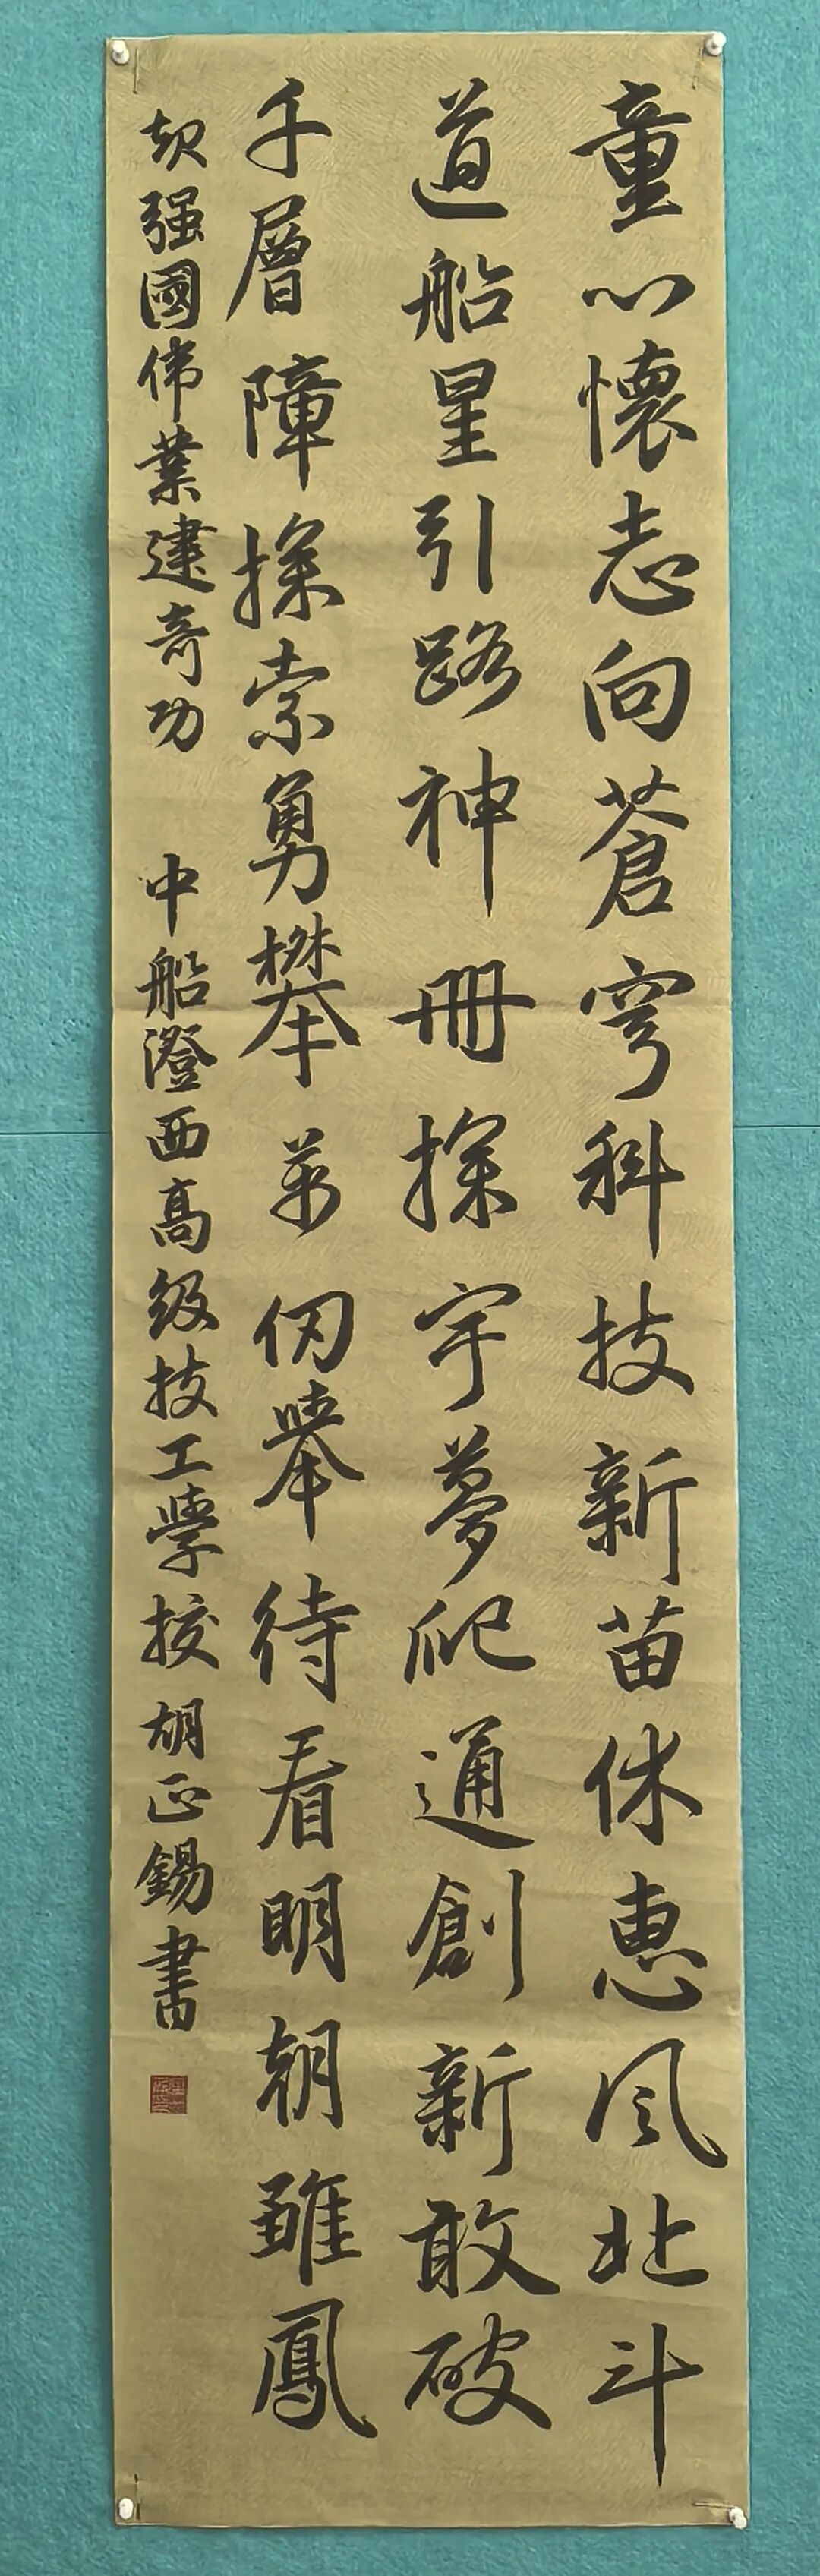 童心懷志向蒼穹科技新苗休惠风北斗
道船星引路神冊探宇夢爬通創新敢破
千層障探索勇攀萬仞舉待看明朝雖鳳
起强國偉業建奇功 中船澄西高级技工學校胡正錫書